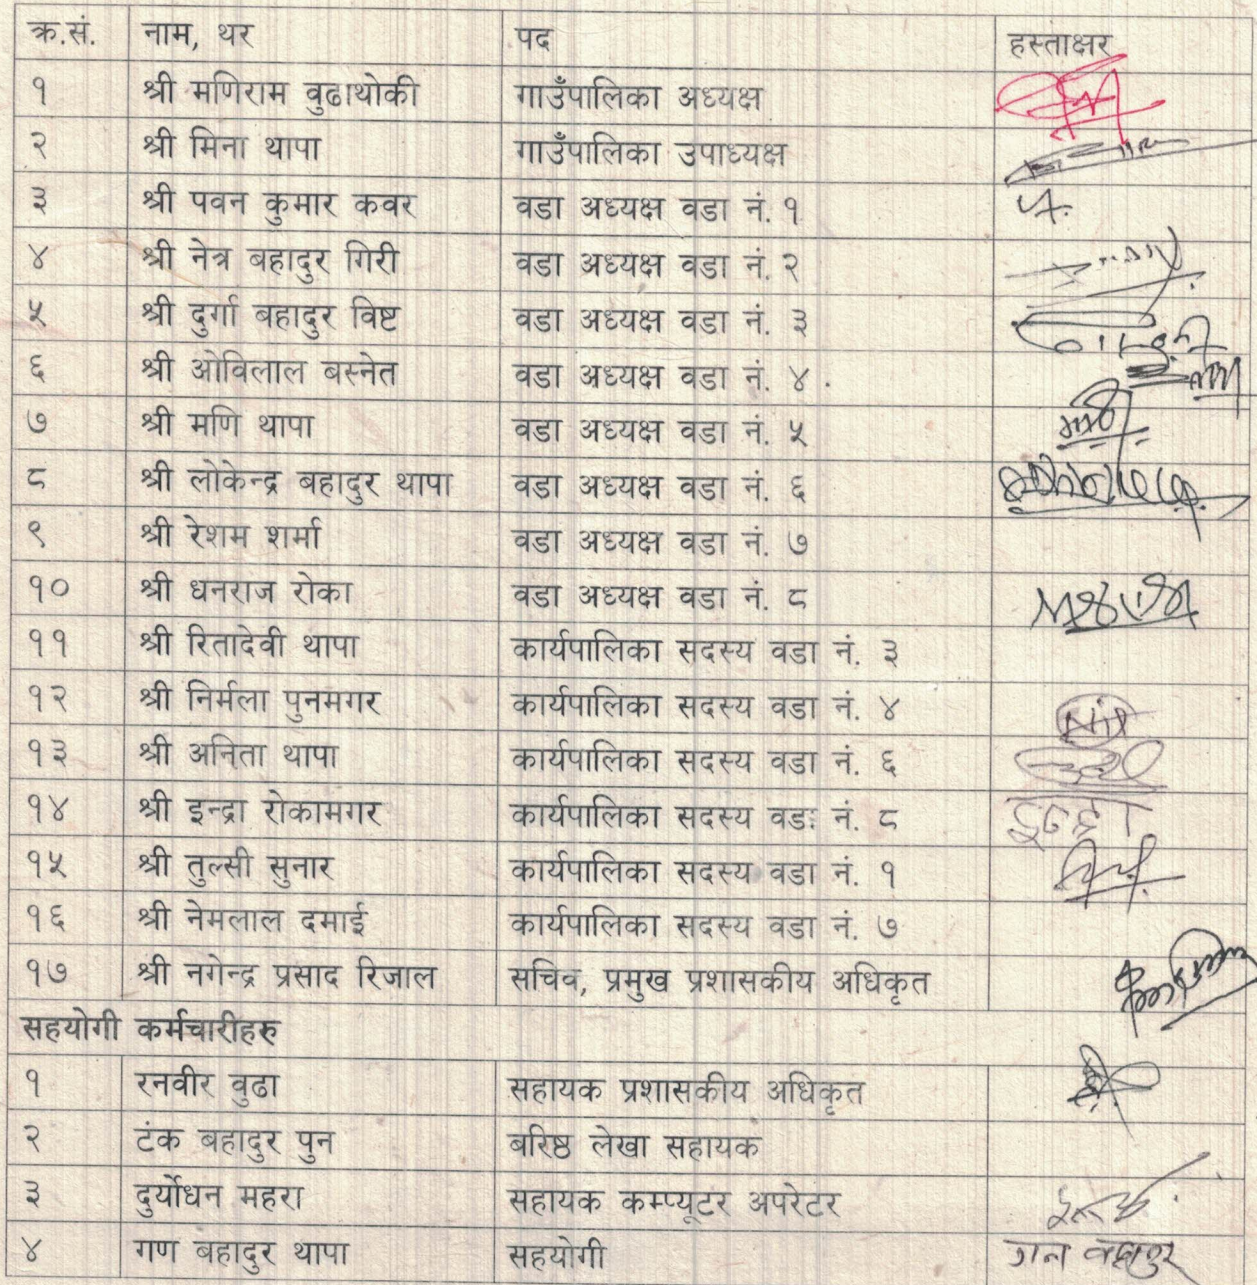 क्र.सं. नाम, थर पद हस्ताक्षर
१ श्री मणिराम वुढाथोकी गाउँपालिका अध्यक्ष
२ श्री मिना थापा गाउँपालिका उपाध्यक्ष
३ श्री पवन कुमार कवर वडा अध्यक्ष वडा नं. १
४ श्री नेत्र बहादुर गिरी वडा अध्यक्ष वडा नं. २
५ श्री दुर्गा बहादुर विष्ट वडा अध्यक्ष वडा नं. ३
६ श्री ओविलाल बस्नेत वडा अध्यक्ष वडा नं. ४
७ श्री मणि थापा वडा अध्यक्ष वडा नं. ५
८ श्री लोकेन्द्र बहादुर थापा वडा अध्यक्ष वडा नं. ६
९ श्री रेशम शर्मा वडा अध्यक्ष वडा नं. ७
१० श्री धनराज रोका वडा अध्यक्ष वडा नं. ८
११ श्री रितादेवी थापा कार्यपालिका सदस्य वडा नं. ३
१२ श्री निर्मला पुनमगर कार्यपालिका सदस्य वडा नं. ४
१३ श्री अनिता थापा कार्यपालिका सदस्य वडा नं. ६
१४ श्री इन्द्रा रोकामगर कार्यपालिका सदस्य वडा नं. ८ इन्द्रा
१५ श्री तुल्सी सुनार कार्यपालिका सदस्य वडा नं. १
१६ श्री नेमलाल दमाई कार्यपालिका सदस्य वडा नं. ७
१७ श्री नगेन्द्र प्रसाद रिजाल सचिव, प्रमुख प्रशासकीय अधिकृत
सहयोगी कर्मचारीहरु
१ रनवीर वुढा सहायक प्रशासकीय अधिकृत
२ टंक बहादुर पुन बरिष्ठ लेखा सहायक
३ दुर्योधन महरा सहायक कम्प्यूटर अपरेटर
४ गण बहादुर थापा सहयोगी गन बहादुर